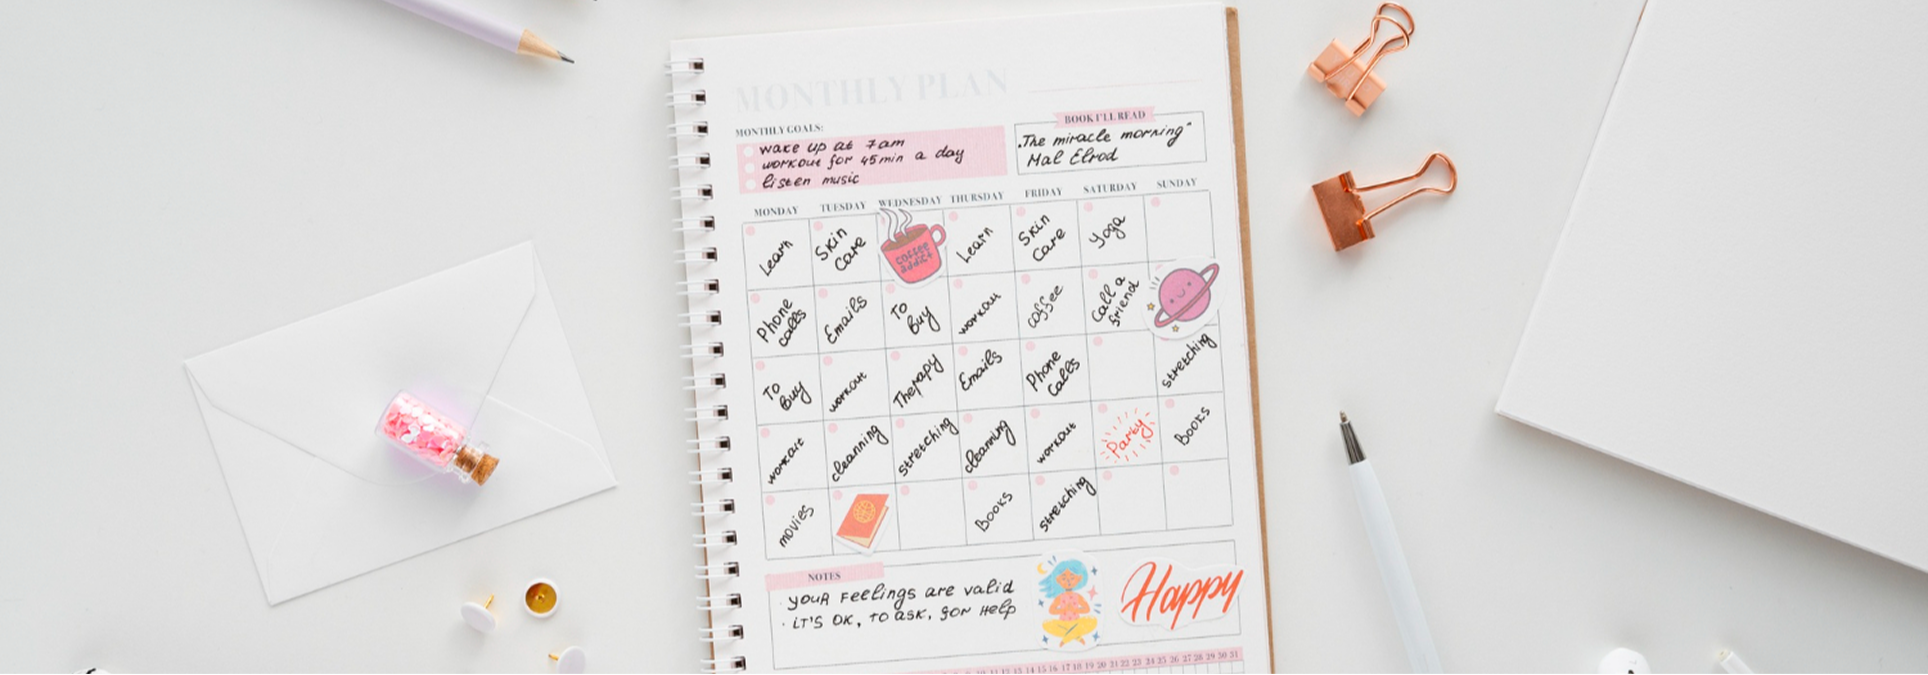 MONTHLY PLAN
MONTHLY GOALS:
wake up at 7am
workout for 45min a day
listen music
BOOK I'LL READ
"The miracle morning"
Mal Elrod
MONDAY TUESDAY WEDNESDAY THURSDAY FRIDAY SATURDAY SUNDAY
Learn
Skin
Care
coffee
addict
Learn
Skin
Care
Yoga
Phone
calls
Emails
To
Buy
workout
coffee
Call a
friend
To
Buy
workout
Therapy
Emails
Phone
Calls
stretching
workout
cleanning
stretching
cleanning
workout
Party
Books
movies
Books
stretching
NOTES
· YOUR FEELINGS ARE VALID
· IT'S OK, TO ASK, FOR HELP
Happy
10 11 12 13 14 15 16 17 18 19 20 21 22 23 24 25 26 27 28 29 30 31